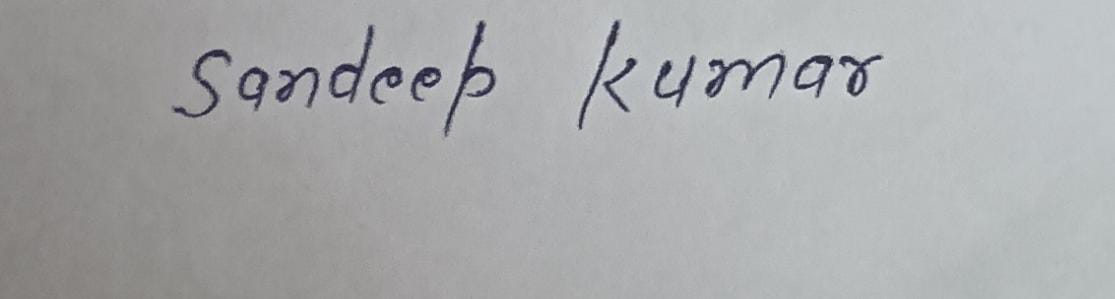 Sandeep kumar